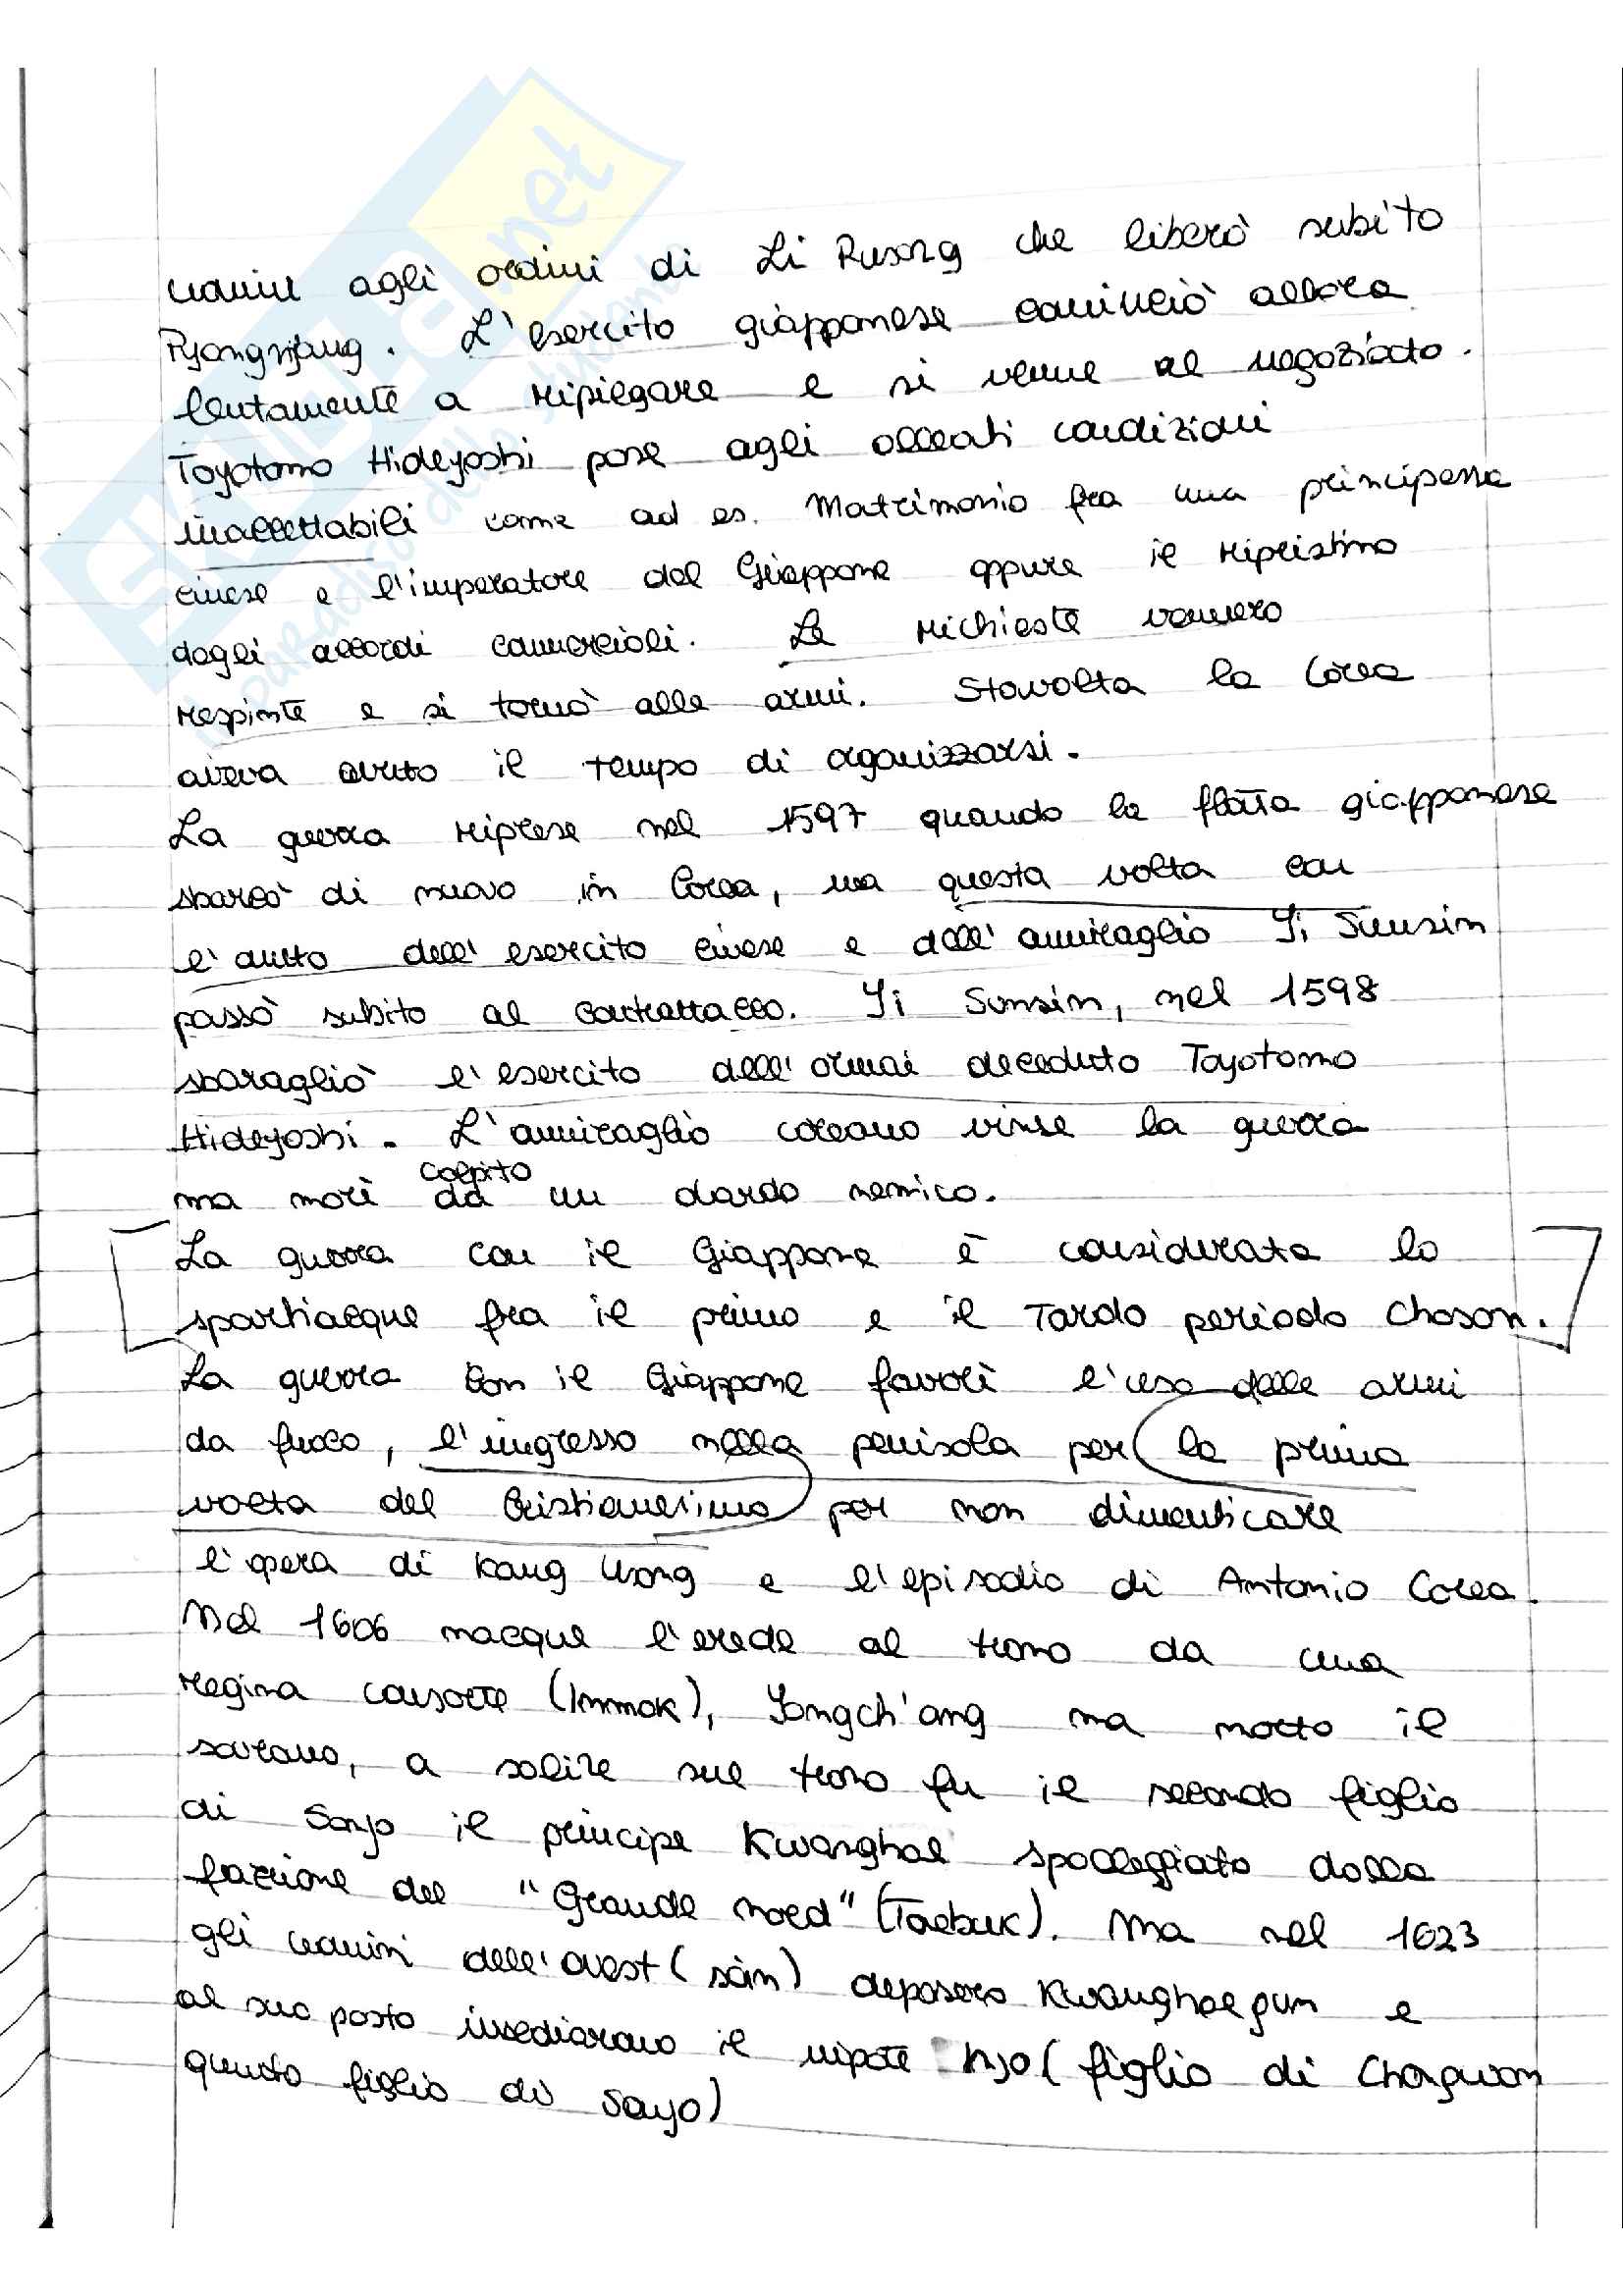 SKUOLA.net
il paradiso dello studente
uomini agli ordini di Li Rusong che liberò subito
Pyongyang. L'esercito giapponese cominciò allora
lentamente a ripiegare e si venne al negoziato.
Toyotomo Hideyoshi pose agli alleati condizioni
inaccettabili come ad es. Matrimonio fra una principessa
cinese e l'imperatore del Giappone oppure il ripristino
degli accordi commerciali. Le richieste vennero
respinte e si tornò alle armi. Stavolta la Corea
aveva avuto il tempo di oganizzarsi.
La guerra riprese nel 1597 quando la flotta giapponese
sbarcò di nuovo in Corea, ma questa volta con
l'aiuto dell'esercito cinese e dell'ammiraglio Yi Sunsin
passò subito al contrattacco. Yi Sunsin, nel 1598
sbaragliò l'esercito dell'ormai deceduto Toyotomo
Hideyoshi. L'ammiraglio coreano vinse la guerra
ma morì colpito da un dardo nemico.
La guerra con il Giappone è considerata lo
spartiacque fra il primo e il Tardo periodo Choson.
La guerra con il Giappone favorì l'uso delle armi
da fuoco, l'ingresso nella penisola per la prima
volta del Cristianesimo per non dimenticare
l'opera di Kang Hang e l'episodio di Antonio Corea.
Nel 1606 nacque l'erede al trono da una
regina consorte (Inmok), Yongch'ang ma morto il
sovrano, a salire sul trono fu il secondo figlio
di Sonjo il principe Kwanghae spalleggiato dalla
fazione del "Grande nord" (Taebuk). Ma nel 1623
gli uomini dell'ovest (sòin) deposero Kwanghaegun e
al suo posto insediarono il nipote Injo (figlio di Chongwon
quinto figlio di Sonjo)